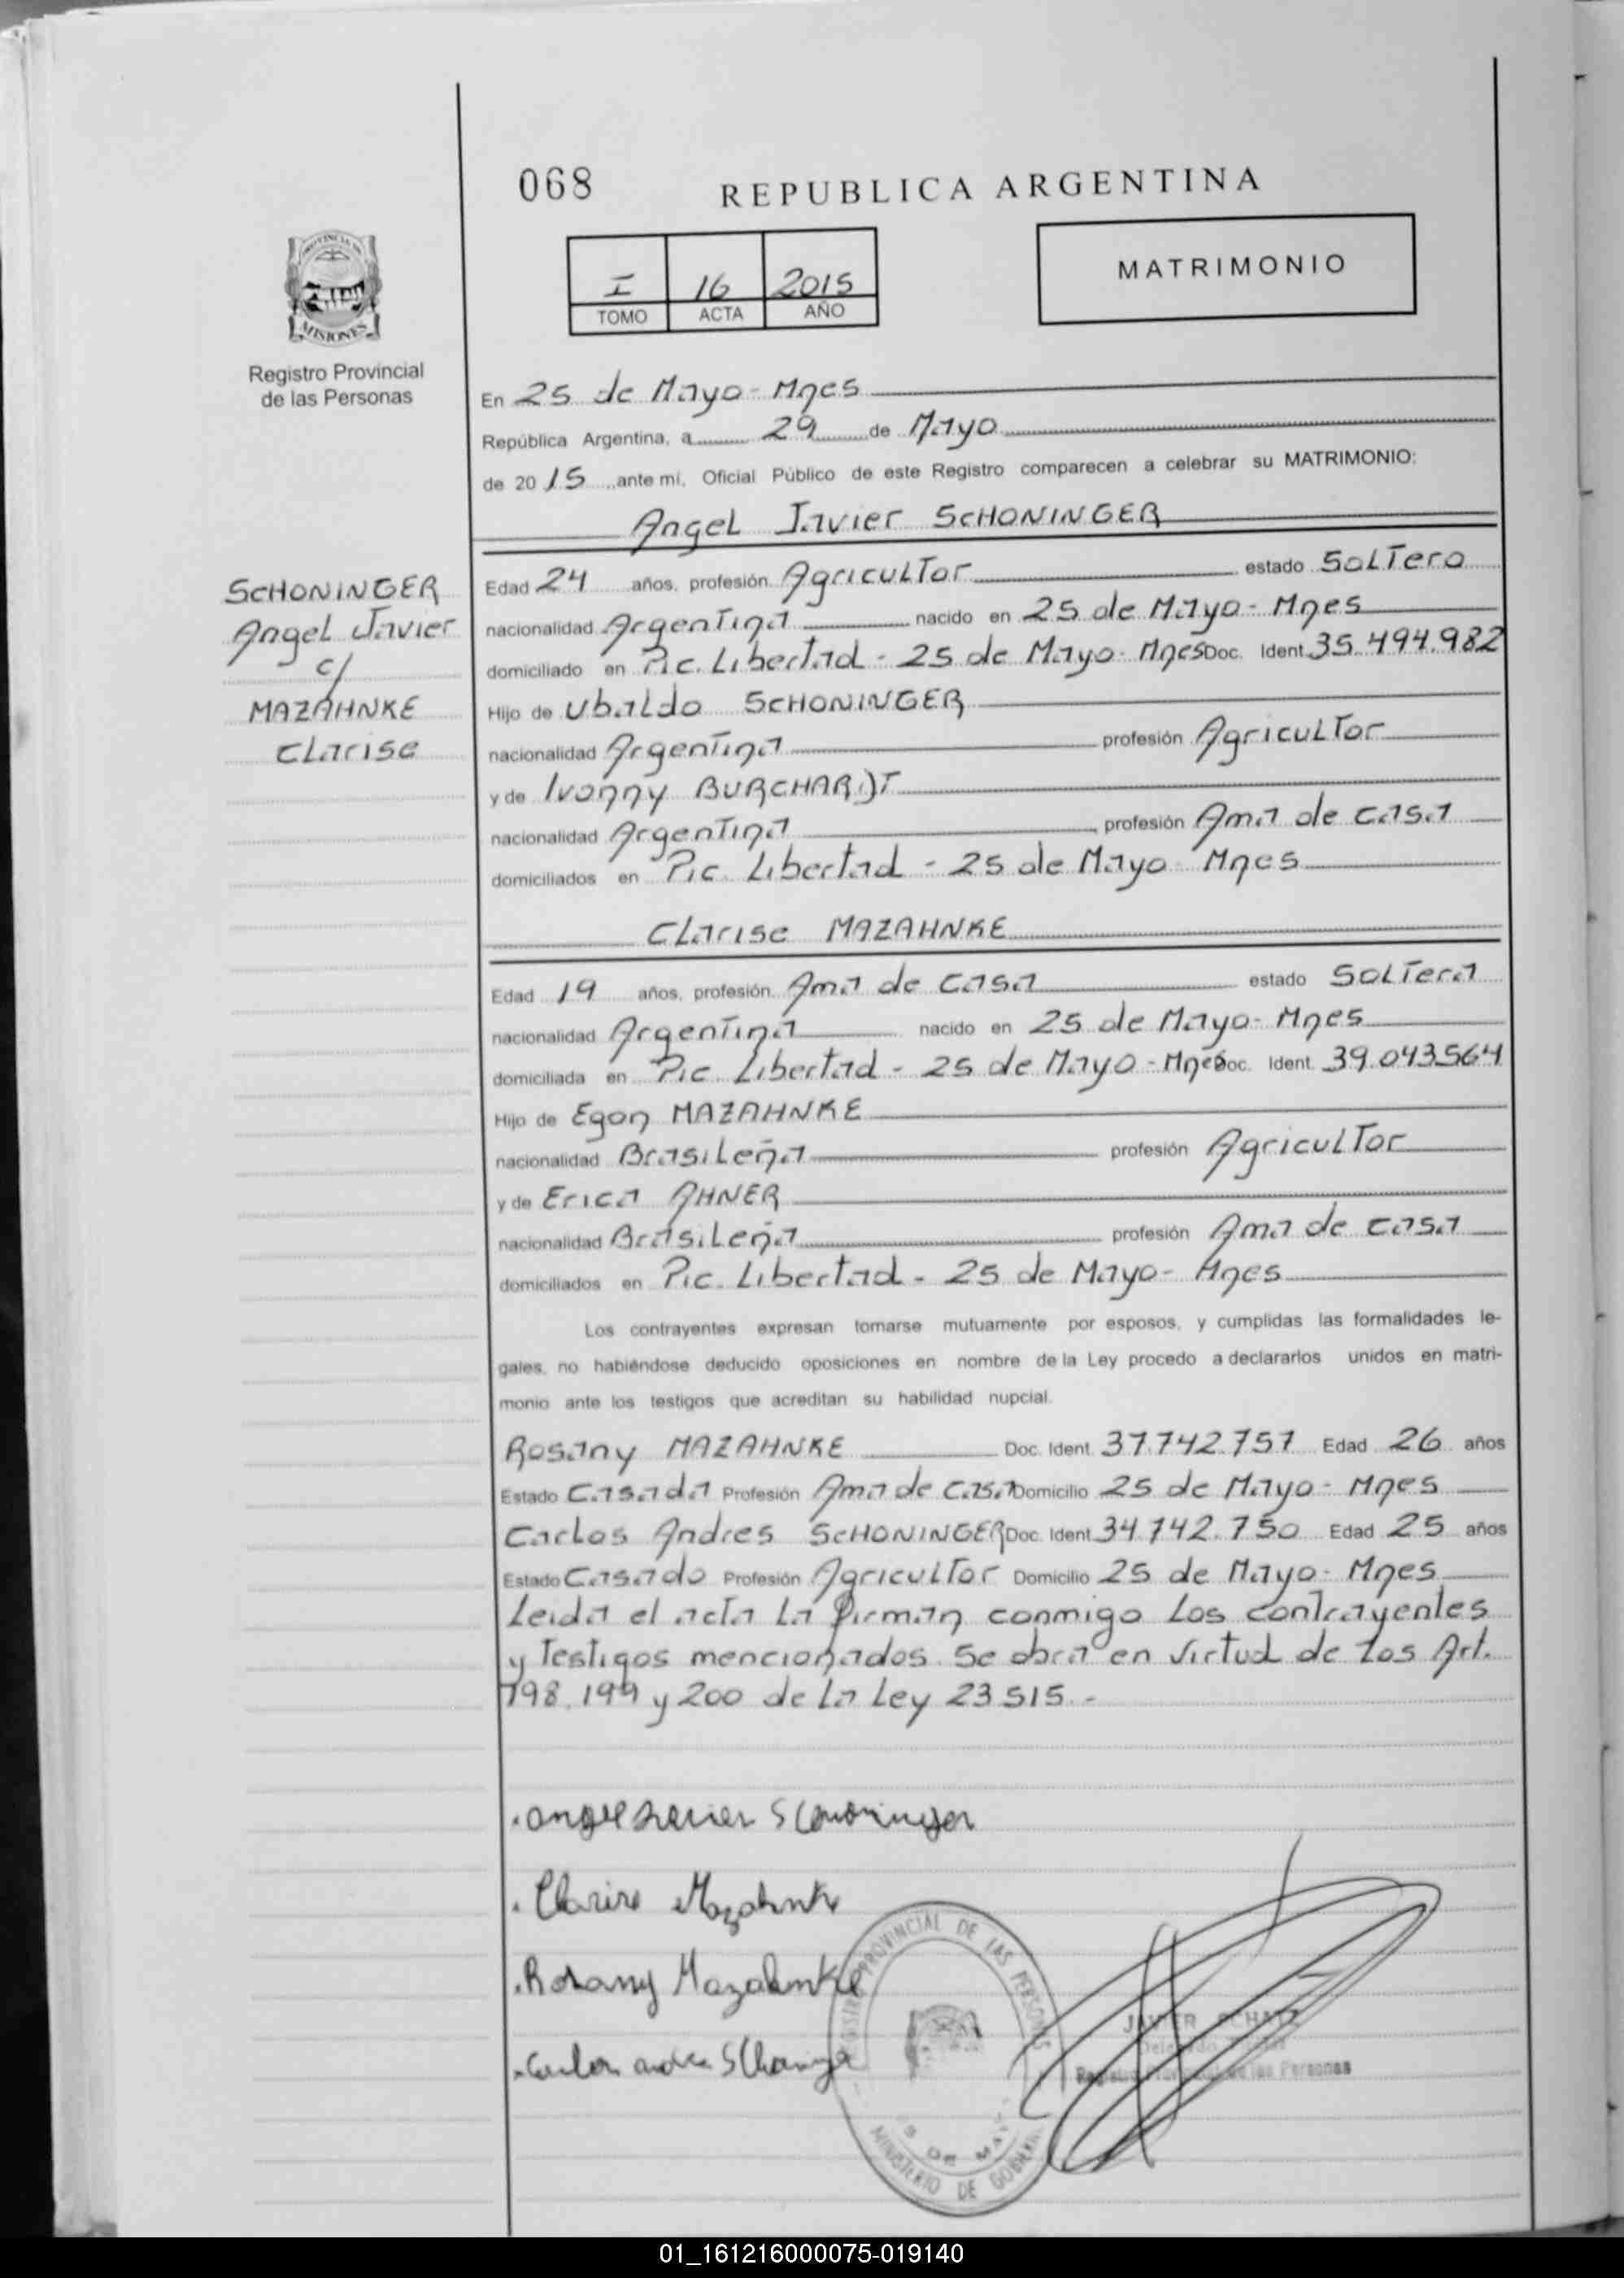 068
REPUBLICA ARGENTINA
PROVINCIA DE
MISIONES
Registro Provincial
de las Personas
I 16 2015
TOMO ACTA AÑO
MATRIMONIO
En 25 de Mayo - Mnes
República Argentina, a 29 de Mayo
de 2015 ante mí, Oficial Público de este Registro comparecen a celebrar su MATRIMONIO:
Angel Javier SCHONINGER
SCHONINGER
Angel Javier
c/
MAZAHNKE
Clarise
Edad 24 años, profesión Agricultor estado Soltero
nacionalidad Argentina nacido en 25 de Mayo - Mnes
domiciliado en Pic. Libertad - 25 de Mayo - Mnes Doc. Ident. 35.494.982
Hijo de Ubaldo SCHONINGER
nacionalidad Argentina profesión Agricultor
y de Ivonny BURCHARDT
nacionalidad Argentina profesión Ama de casa
domiciliados en Pic. Libertad - 25 de Mayo - Mnes
Clarise MAZAHNKE
Edad 19 años, profesión Ama de casa estado Soltera
nacionalidad Argentina nacido en 25 de Mayo - Mnes
domiciliada en Pic. Libertad - 25 de Mayo - Mnes Doc. Ident. 39.043.564
Hijo de Egon MAZAHNKE
nacionalidad Brasileña profesión Agricultor
y de Erica AHNER
nacionalidad Brasileña profesión Ama de casa
domiciliados en Pic. Libertad - 25 de Mayo - Mnes
Los contrayentes expresan tomarse mutuamente por esposos, y cumplidas las formalidades le-
gales, no habiéndose deducido oposiciones en nombre de la Ley procedo a declararlos unidos en matri-
monio ante los testigos que acreditan su habilidad nupcial.
Rosany MAZAHNKE Doc. Ident. 37.742.757 Edad 26 años
Estado Casada Profesión Ama de casa Domicilio 25 de Mayo - Mnes
Carlos Andres SCHONINGER Doc. Ident. 34.742.750 Edad 25 años
Estado Casado Profesión Agricultor Domicilio 25 de Mayo - Mnes
Leida el acta la firman conmigo los contrayentes
y testigos mencionados. Se obra en virtud de los Art.
198, 199 y 200 de la Ley 23.515.-
Clarise Mazahnke
Rosany Mazahnke
REGISTRO PROVINCIAL DE LAS PERSONAS
DE MAYO
MINISTERIO DE GOBIERNO
JAVIER
Registro Provincial de las Personas
01_161216000075-019140